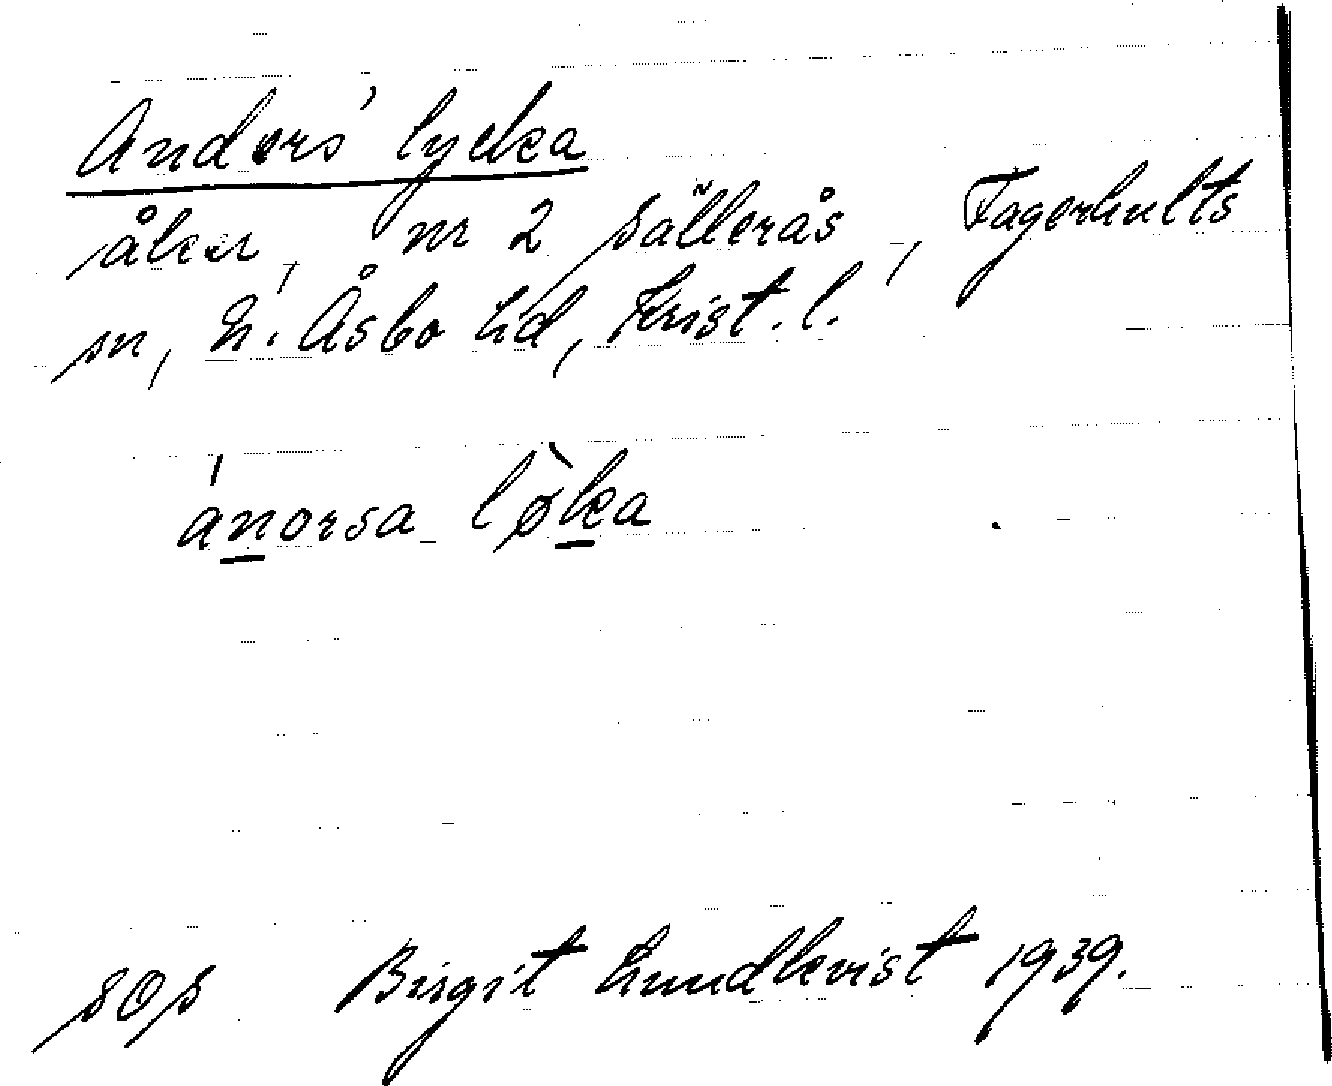 Anders' lycka
åker, nr 2 Sällerås, Fagerhults
sn, N. Åsbo hd, Krist. l.
ánorsa lø̀ka
SOS Birgit Lundkvist 1939.